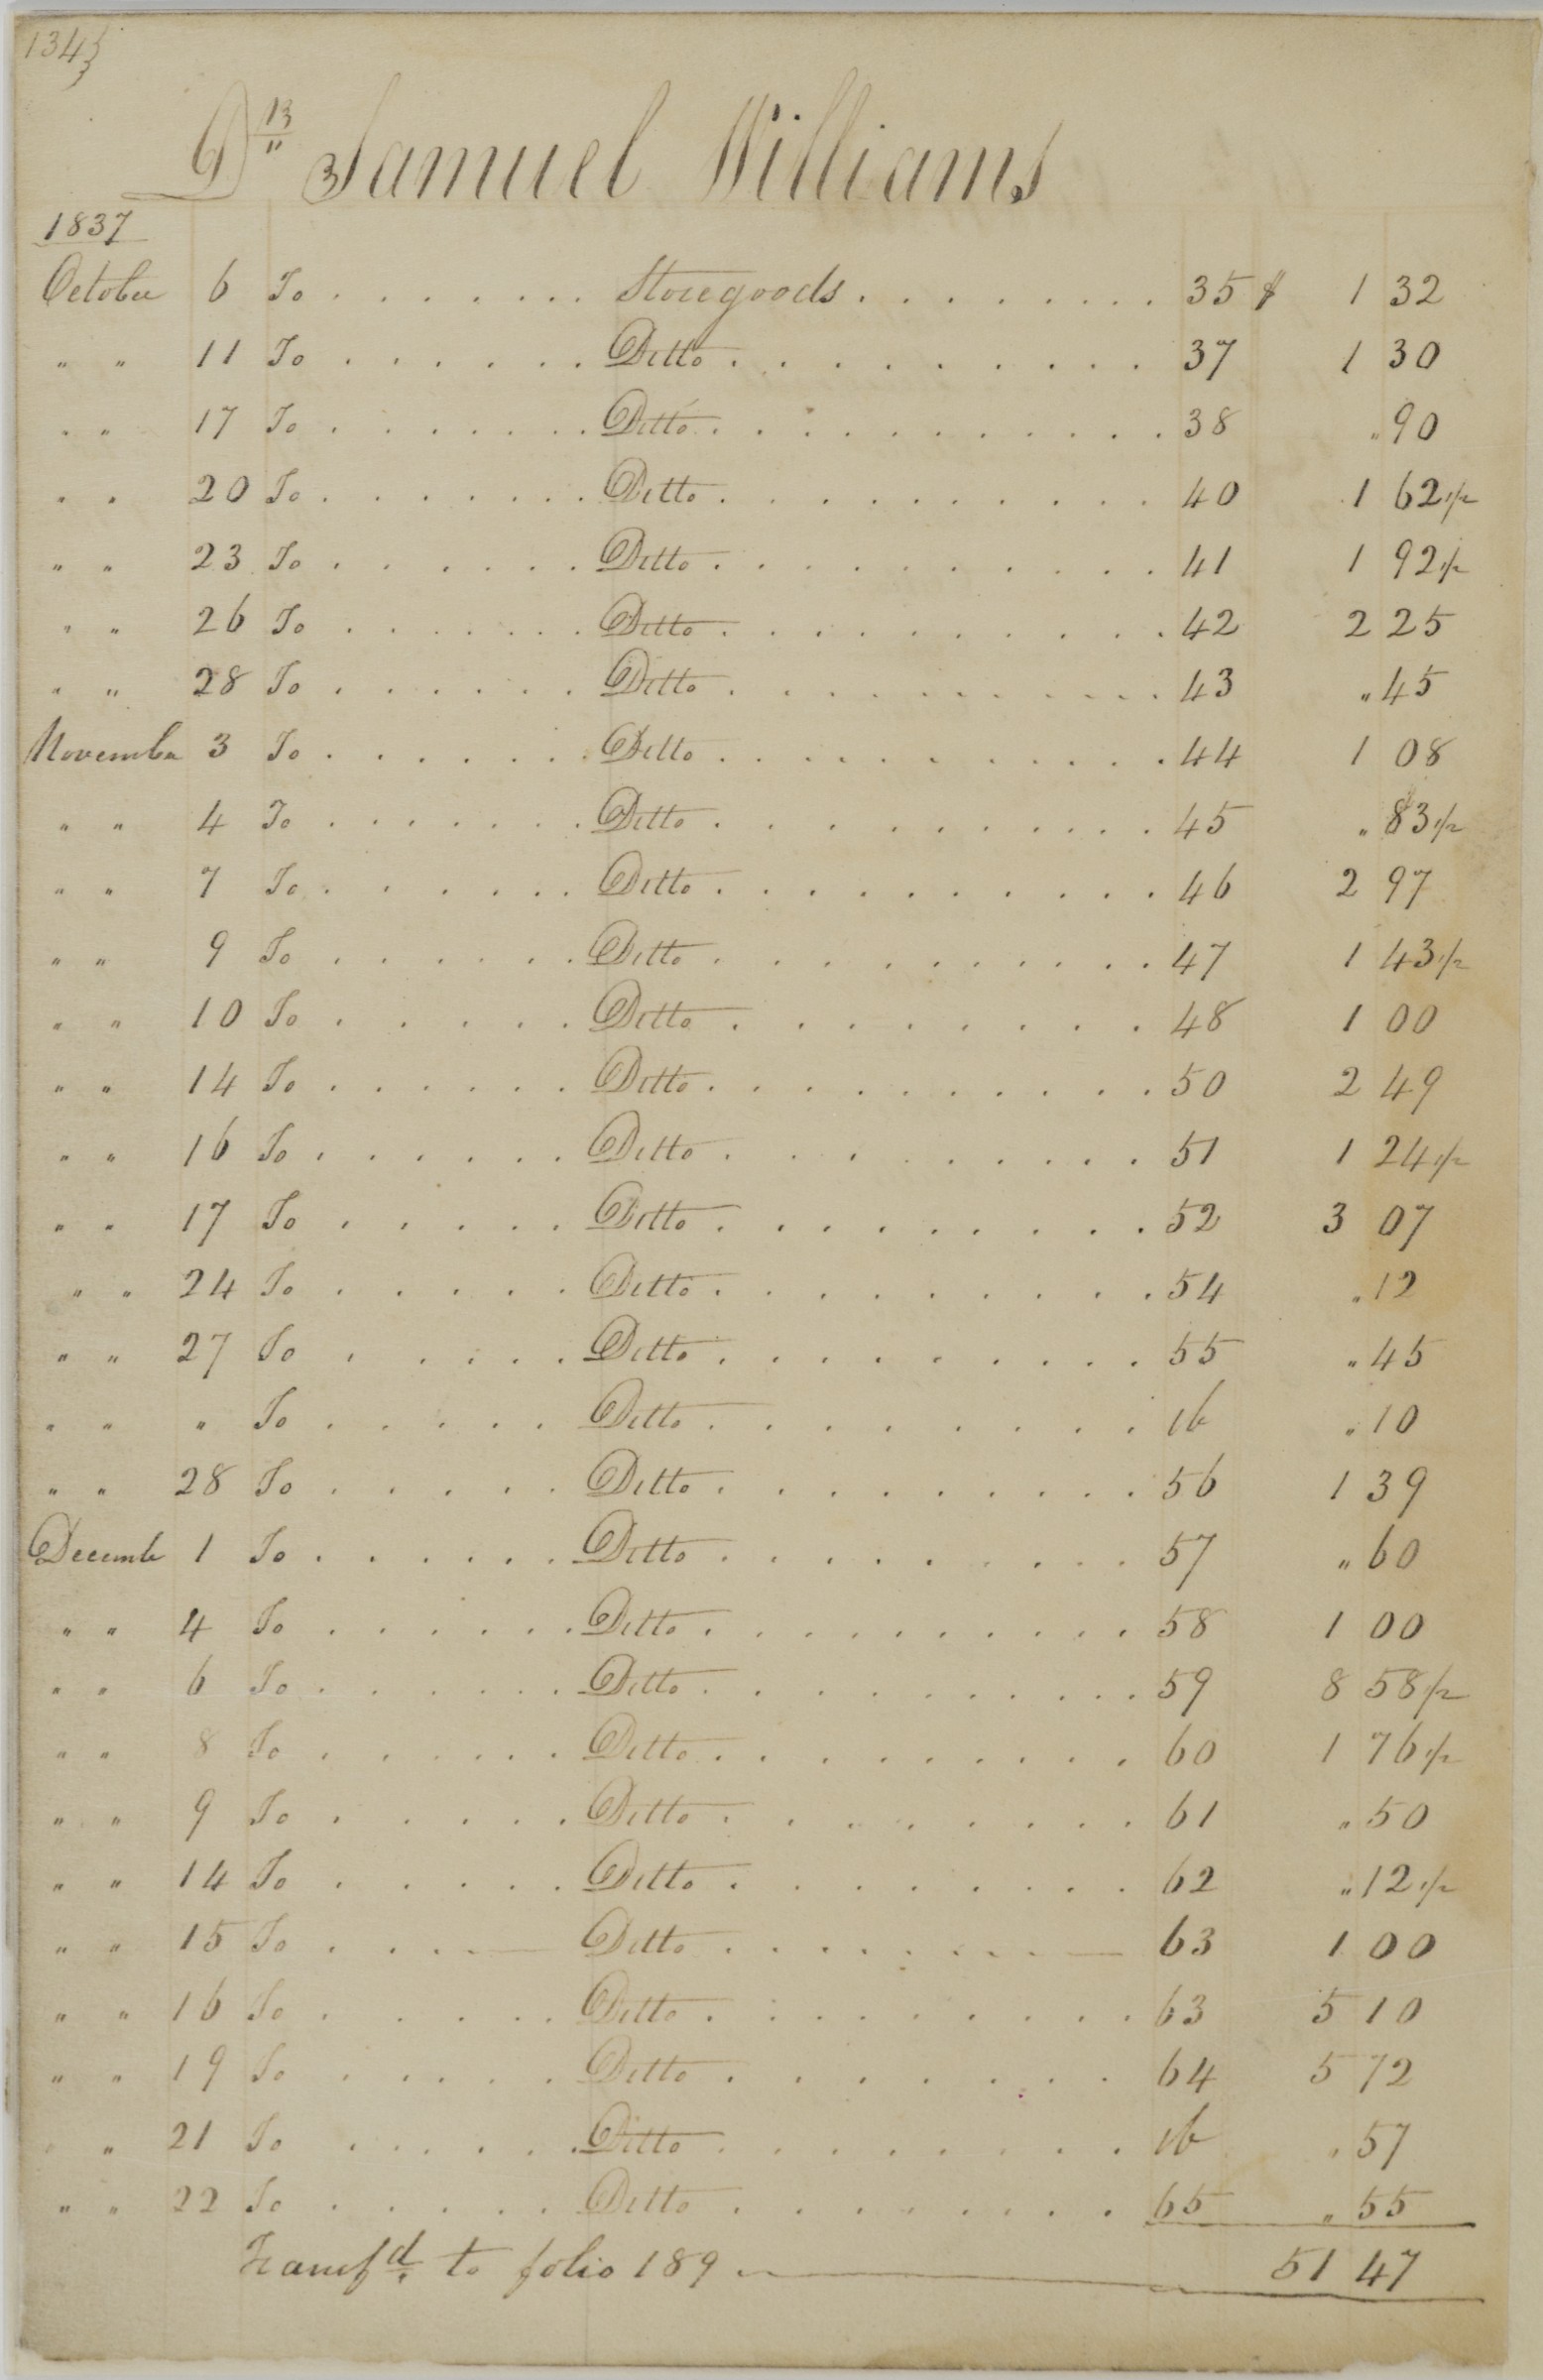 134}
Dr Samuel Williams
1837
October 6 To . . . . . . . Storegoods . . . . . . . . 35 $ 1 32
" " 11 To . . . . . . Ditto . . . . . . . . . 37 1 30
" " 17 To . . . . . . . Ditto . . . . . . . . . . 38 " 90
" " 20 To . . . . . . . Ditto . . . . . . . . . . 40 1 62 1/2
" " 23 To . . . . . . Ditto . . . . . . . . . . 41 1 92 1/2
" " 26 To . . . . . . Ditto . . . . . . . . . . 42 2 25
" " 28 To . . . . . . Ditto . . . . . . . . . . 43 " 45
November 3 To . . . . . . . Ditto . . . . . . . . . . 44 1 08
" " 4 To . . . . . . . Ditto . . . . . . . . . . 45 " 83 1/2
" " 7 To . . . . . . Ditto . . . . . . . . . . 46 2 97
" " 9 To . . . . . . Ditto . . . . . . . . . . 47 1 43 1/2
" " 10 To . . . . . Ditto . . . . . . . . . 48 1 00
" " 14 To . . . . . . Ditto . . . . . . . . . . 50 2 49
" " 16 To . . . . . . Ditto . . . . . . . . . 51 1 24 1/2
" " 17 To . . . . . Ditto . . . . . . . . . 52 3 07
" " 24 To . . . . . Ditto . . . . . . . . . 54 " 12
" " 27 To . . . . . Ditto . . . . . . . . . 55 " 45
" " " To . . . . . Ditto . . . . . . . . . ib " 10
" " 28 To . . . . . Ditto . . . . . . . . . 56 1 39
Decemb 1 To . . . . . . Ditto . . . . . . . . . 57 " 60
" " 4 To . . . . . . Ditto . . . . . . . . . . 58 1 00
" " 6 To . . . . . . Ditto . . . . . . . . . . 59 8 58 1/2
" " 8 To . . . . . . Ditto . . . . . . . . . 60 1 76 1/2
" " 9 To . . . . . Ditto . . . . . . . . . 61 " 50
" " 14 To . . . . . Ditto . . . . . . . . 62 " 12 1/2
" " 15 To . . . . — Ditto . . . . . . . . — 63 1 00
" " 16 To . . . . . Ditto . . . . . . . . . 63 5 10
" " 19 To . . . . . Ditto . . . . . . . . 64 5 72
" " 21 To . . . . . . Ditto . . . . . . . . . ib " 57
" " 22 To . . . . . Ditto . . . . . . . . 65 " 55
Transfd to folio 189 — 51 47